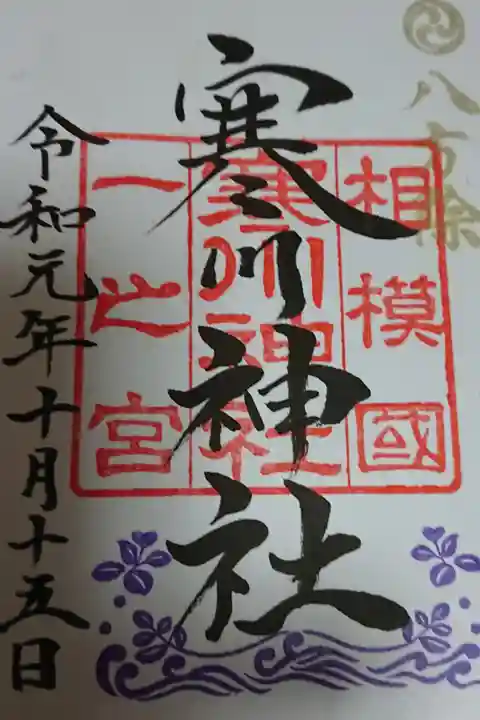 八方除
相模國
寒川神社
一之宮
寒川神社
令和元年十月十五日